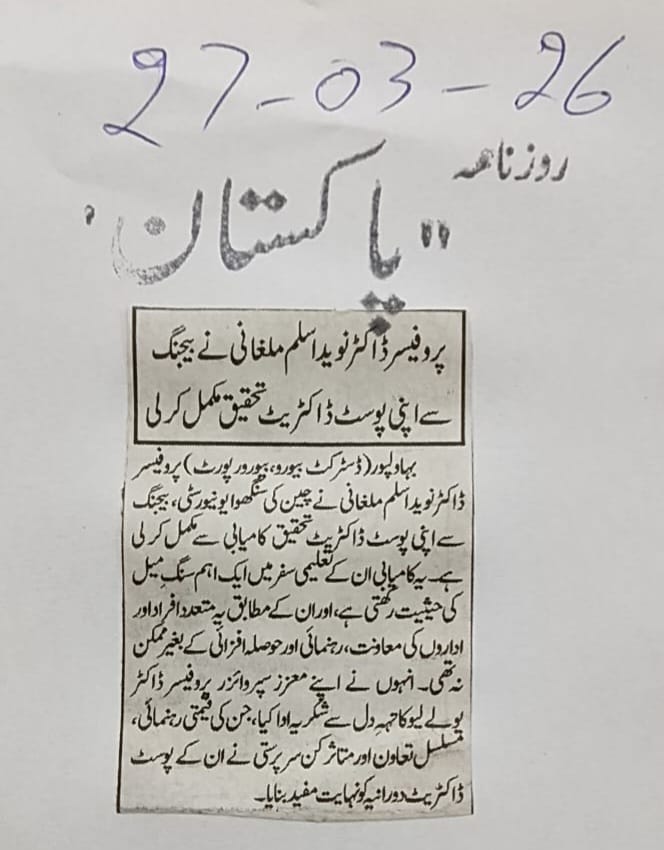 27-03-26
روزنامہ
"پاکستان"
پروفیسر ڈاکٹر نوید اسلم ملغانی نے بیجنگ
سے اپنی پوسٹ ڈاکٹریٹ تحقیق مکمل کر لی
بہاولپور (ڈسٹرکٹ بیورو، بیورورپورٹ) پروفیسر
ڈاکٹر نوید اسلم ملغانی نے چین کی سنگھوا یونیورسٹی، بیجنگ
سے اپنی پوسٹ ڈاکٹریٹ تحقیق کامیابی سے مکمل کر لی
ہے۔ یہ کامیابی ان کے تعلیمی سفر میں ایک اہم سنگ میل
کی حیثیت رکھتی ہے، اور ان کے مطابق یہ متعدد افراد اور
اداروں کی معاونت، رہنمائی اور حوصلہ افزائی کے بغیر ممکن
نہ تھی۔ انہوں نے اپنے معزز سپروائزر پروفیسر ڈاکٹر
یولے لیو کا تہہ دل سے شکریہ ادا کیا، جن کی قیمتی رہنمائی،
مسلسل تعاون اور متاثر کن سرپرستی نے ان کے پوسٹ
ڈاکٹریٹ دورانیہ کو نہایت مفید بنایا۔